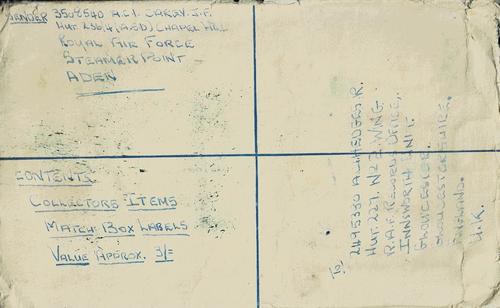 SENDER 3508540 A.C.1. CAREY. J.F.
HUT 256, 4, (A.S.D) CHAPEL HILL
ROYAL AIR FORCE
STEAMER POINT
ADEN
CONTENTS.
COLLECTORS ITEMS
MATCH BOX LABELS
VALUE APPROX. 3/=
To,
2495380 HEDGES R.
HUT. 227. No 2. WING.
R.A.F. RECORD OFFICE,
INNSWORTH UNIT
GLOUCESTER.
GLOUCESTERSHIRE.
ENGLAND.
U.K.